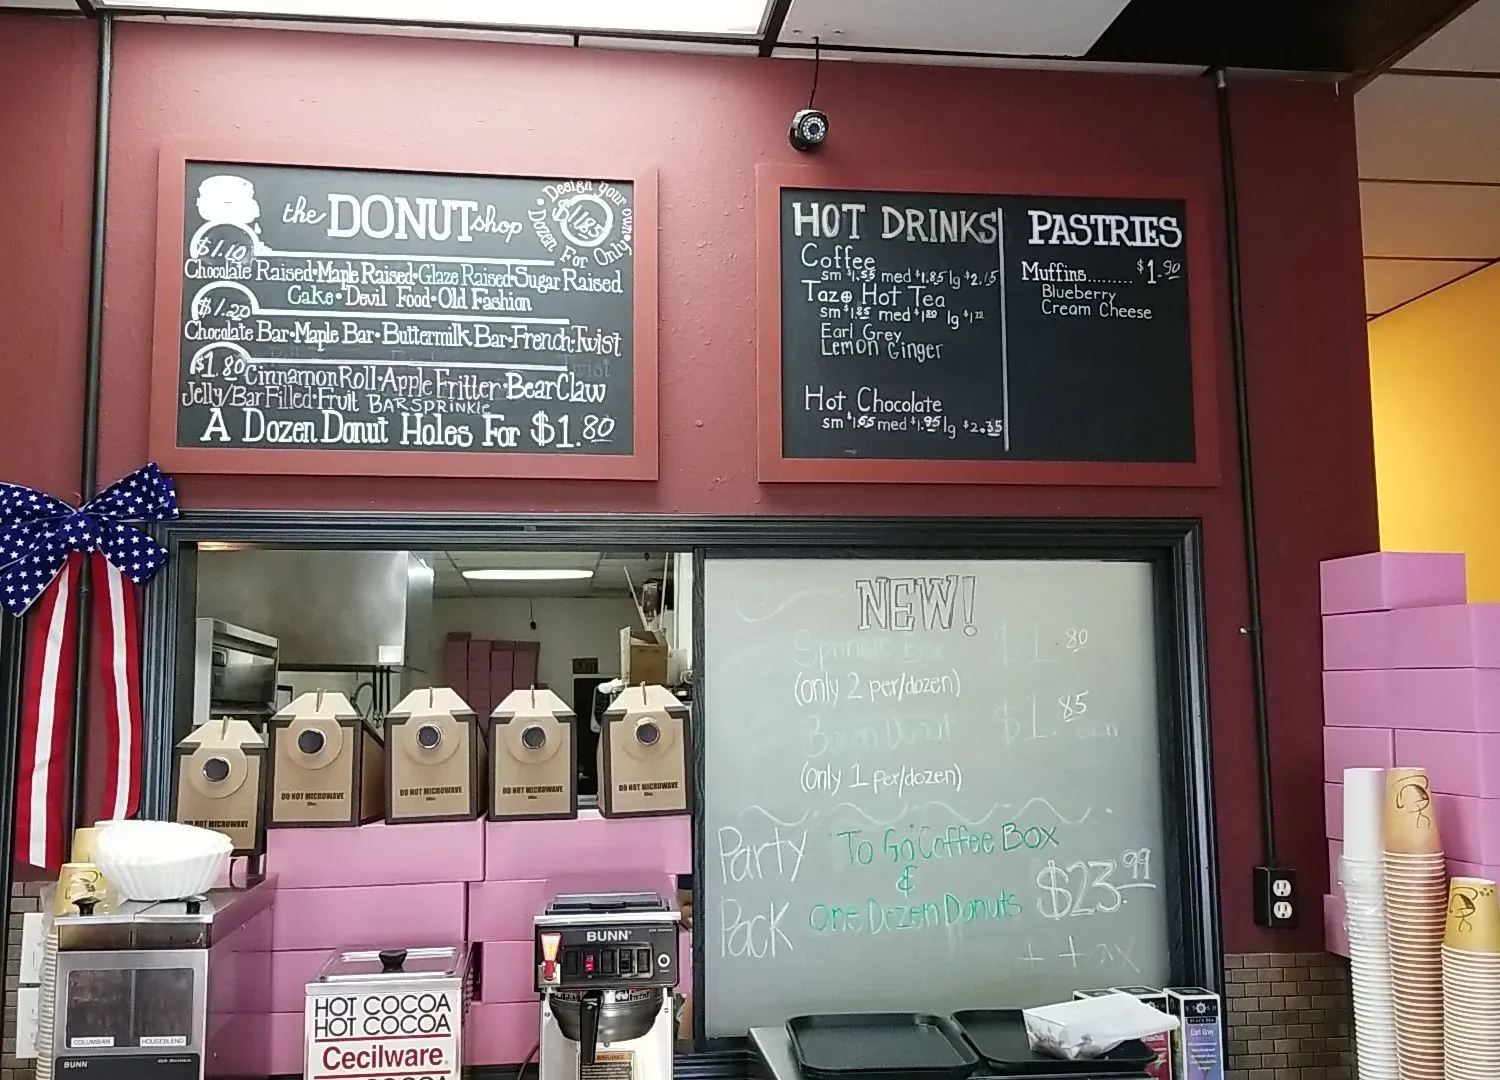 the DONUT shop
Design your own
Dozen For Only
$11.85
$1.10
Chocolate Raised•Maple Raised•Glaze Raised•Sugar Raised
Cake•Devil Food•Old Fashion
$1.20
Chocolate Bar•Maple Bar•Buttermilk Bar•French•Twist
$1.80
Cinnamon Roll•Apple Fritter•Bear Claw
Jelly/Bar Filled•Fruit BAR SPRINKLE
A Dozen Donut Holes For $1.80
HOT DRINKS
Coffee
sm $1.55 med $1.85 lg $2.15
Tazo Hot Tea
sm $1.85 med lg
Earl Grey
Lemon Ginger
Hot Chocolate
sm $1.65 med $1.95 lg $2.35
PASTRIES
Muffins......... $1.90
Blueberry
Cream Cheese
NEW!
Sprinkle Bar $1.80
(only 2 per/dozen)
Bacon Donut $1.85 each
(only 1 per/dozen)
Party Pack
To Go Coffee Box
&
One Dozen Donuts
$23.99
+ tax
DO NOT MICROWAVE
DO NOT MICROWAVE
DO NOT MICROWAVE
DO NOT MICROWAVE
DO NOT MICROWAVE
COLUMBIAN
HOUSEBLEND
BUNN
HOT COCOA
HOT COCOA
Cecilware
BUNN
WARNING
Earl Grey